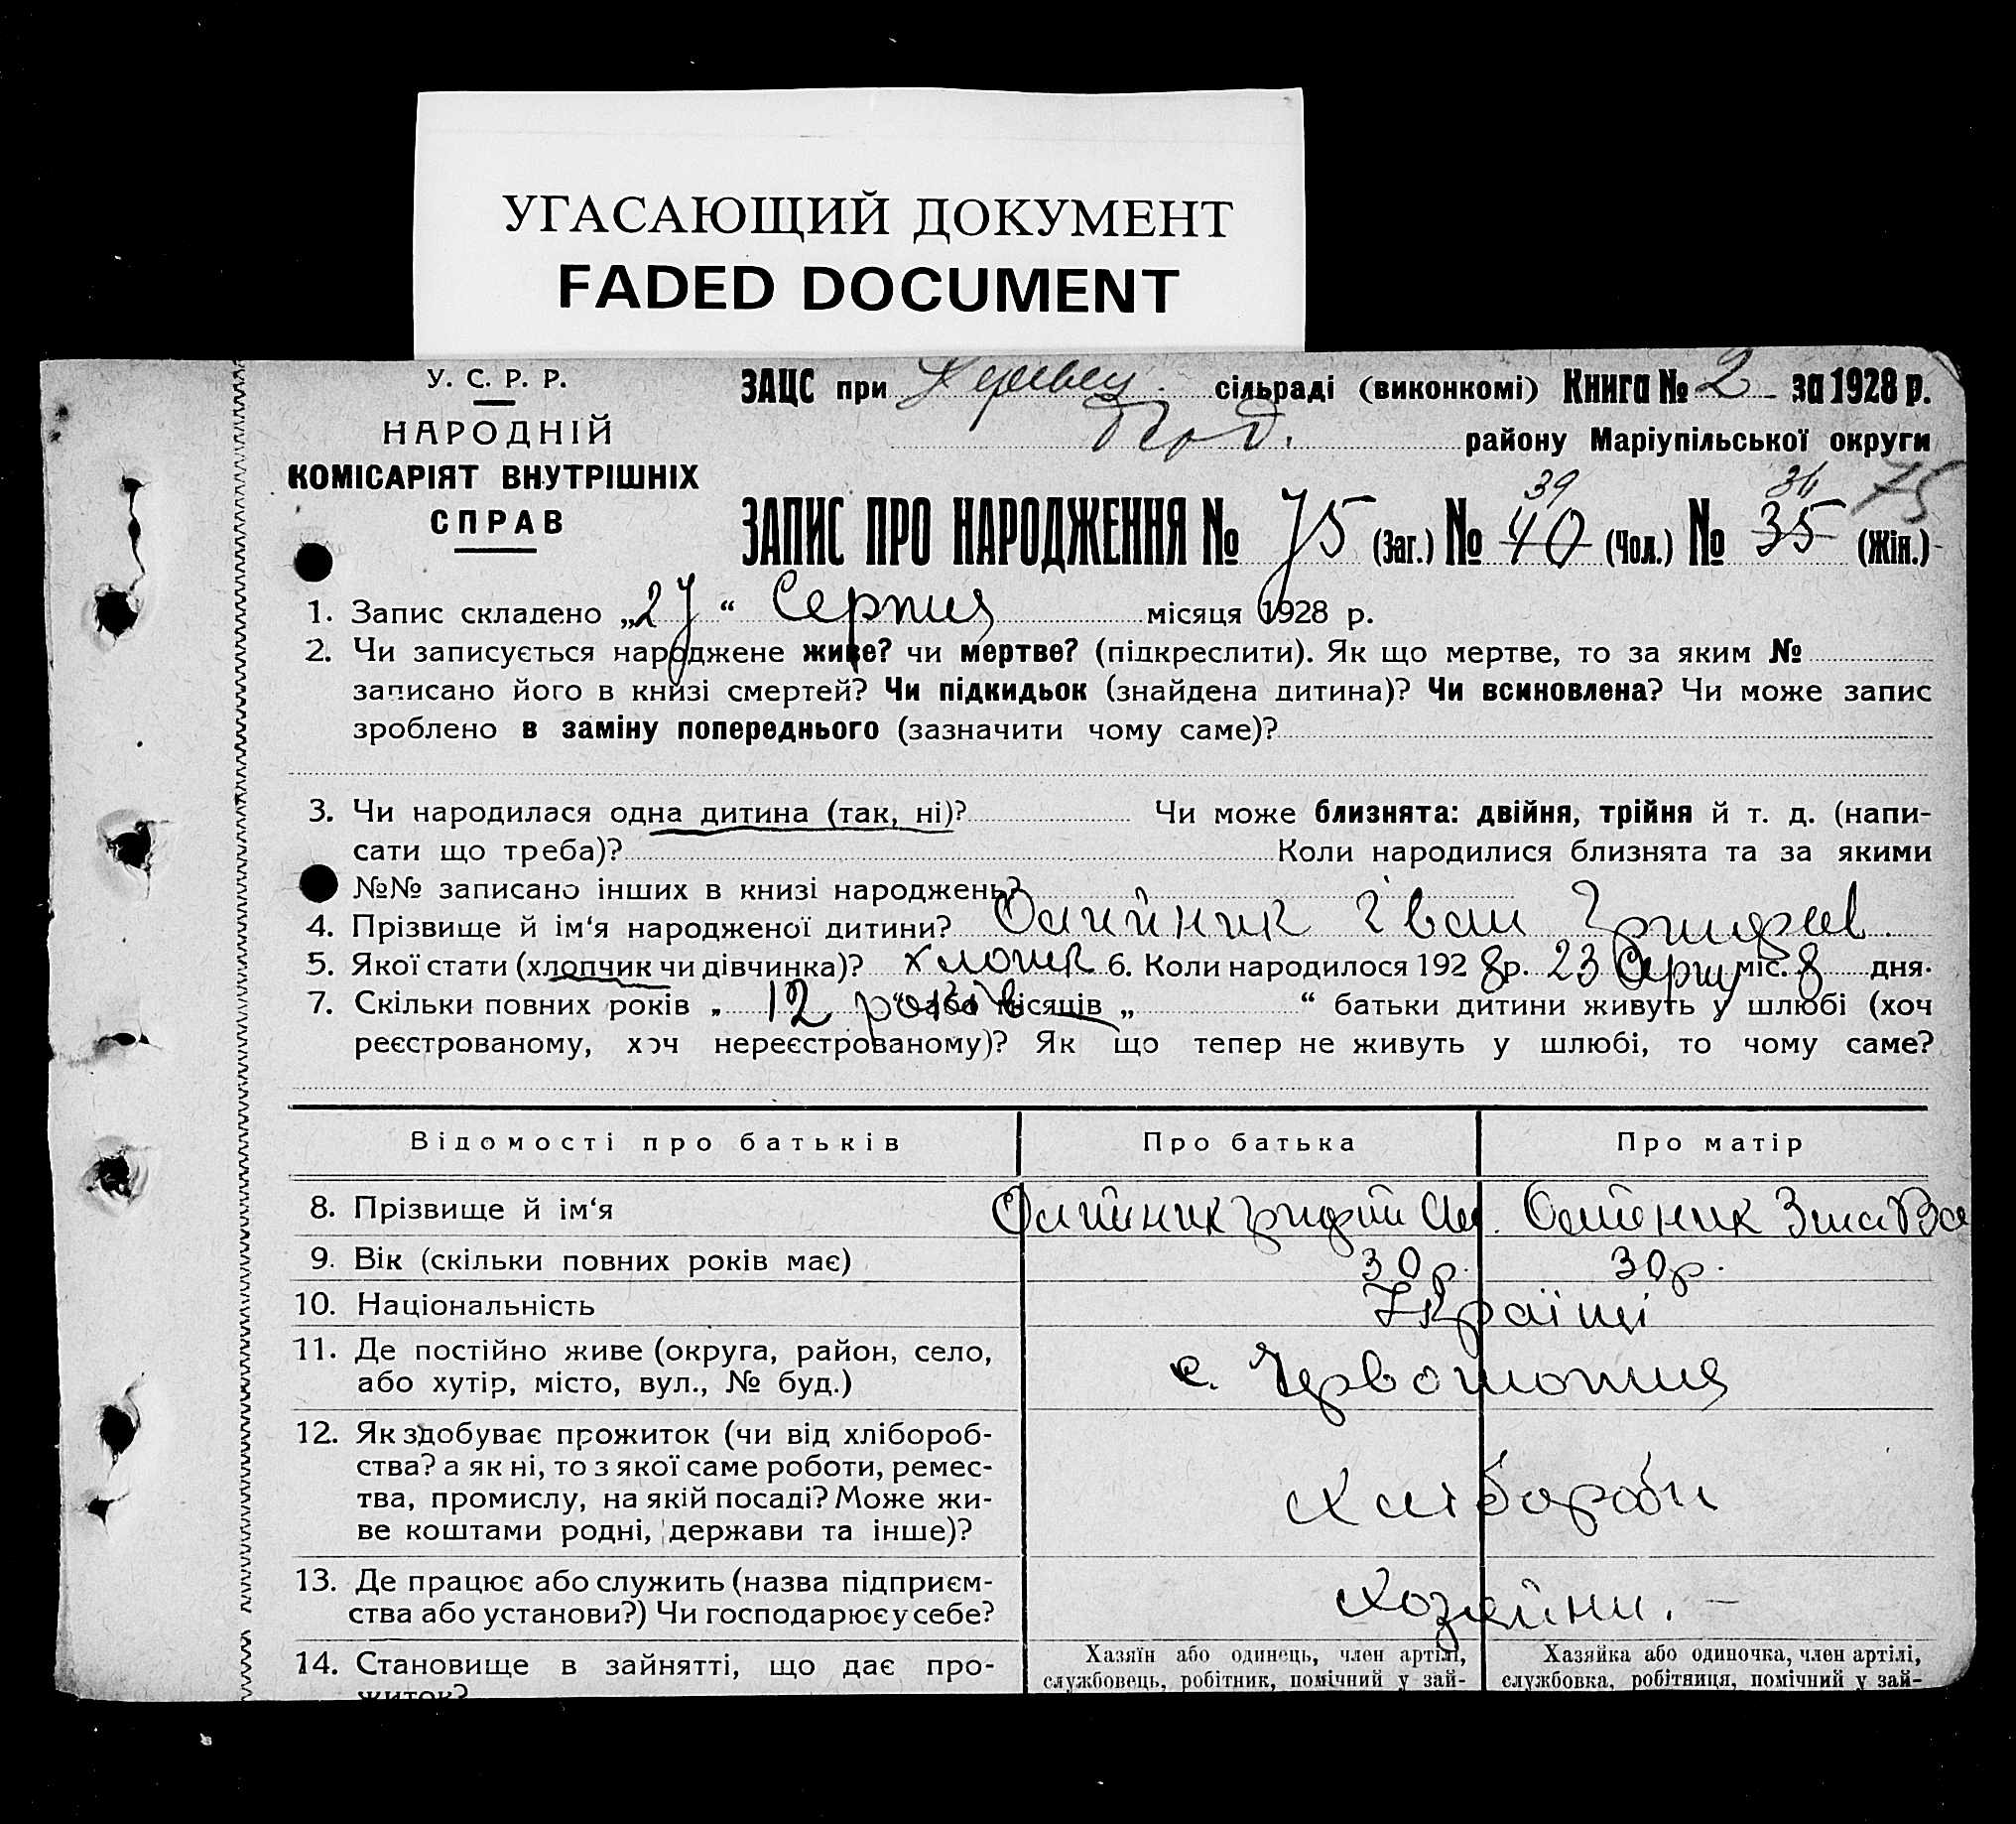 УГАСАЮЩИЙ ДОКУМЕНТ
FADED DOCUMENT
У. С. Р. Р.
НАРОДНІЙ
КОМІСАРІЯТ ВНУТРІШНІХ
СПРАВ
ЗАЦС при сільраді (виконкомі) Книга № 2 за 1928 р.
району Маріупільської округи
39 36 75
ЗАПИС ПРО НАРОДЖЕННЯ № 75 (Заг.) № 40 (Чол.) № 35 (Жін.)
1. Запис складено „27“ Серпня місяця 1928 р.
2. Чи записується народжене живе? чи мертве? (підкреслити). Як що мертве, то за яким №
записано його в книзі смертей? Чи підкидьок (знайдена дитина)? Чи всиновлена? Чи може запис
зроблено в заміну попереднього (зазначити чому саме)?
3. Чи народилася одна дитина (так, ні)? Чи може близнята: двійня, трійня й т. д. (напи-
сати що треба)? Коли народилися близнята та за якими
№№ записано інших в книзі народжень?
4. Прізвище й ім‘я народженої дитини? Олийник Іван Григор
5. Якої статі (хлопчик чи дівчинка)? хлопчик 6. Коли народилося 192 8 р. 23 Серпн міс. 8 дня.
7. Скільки повних років „ 12 років “ або місяців „ “ батьки дитини живуть у шлюбі (хоч
реєстрованому, хоч нереєстрованому)? Як що тепер не живуть у шлюбі, то чому саме?
Відомості про батьків Про батька Про матір
8. Прізвище й ім‘я Олийник Григорій Олийник
9. Вік (скільки повних років має) 30 р. 30 р.
10. Національність Українці
11. Де постійно живе (округа, район, село,
або хутір, місто, вул., № буд.) с.
12. Як здобуває прожиток (чи від хлібороб-
ства? а як ні, то з якої саме роботи, ремес-
тва, промислу, на якій посаді? Може жи-
ве коштами родні, держави та інше)? Хлібороби
13. Де працює або служить (назва підприєм-
ства або установи?) Чи господарює у себе? Хозяйни. –
14. Становище в зайнятті, що дає про-
житок?
Хазяїн або одинець, член артілі,
службовець, робітник, помічний у зай-
Хазяйка або одиночка, член артілі,
службовка, робітниця, помічний у зай-